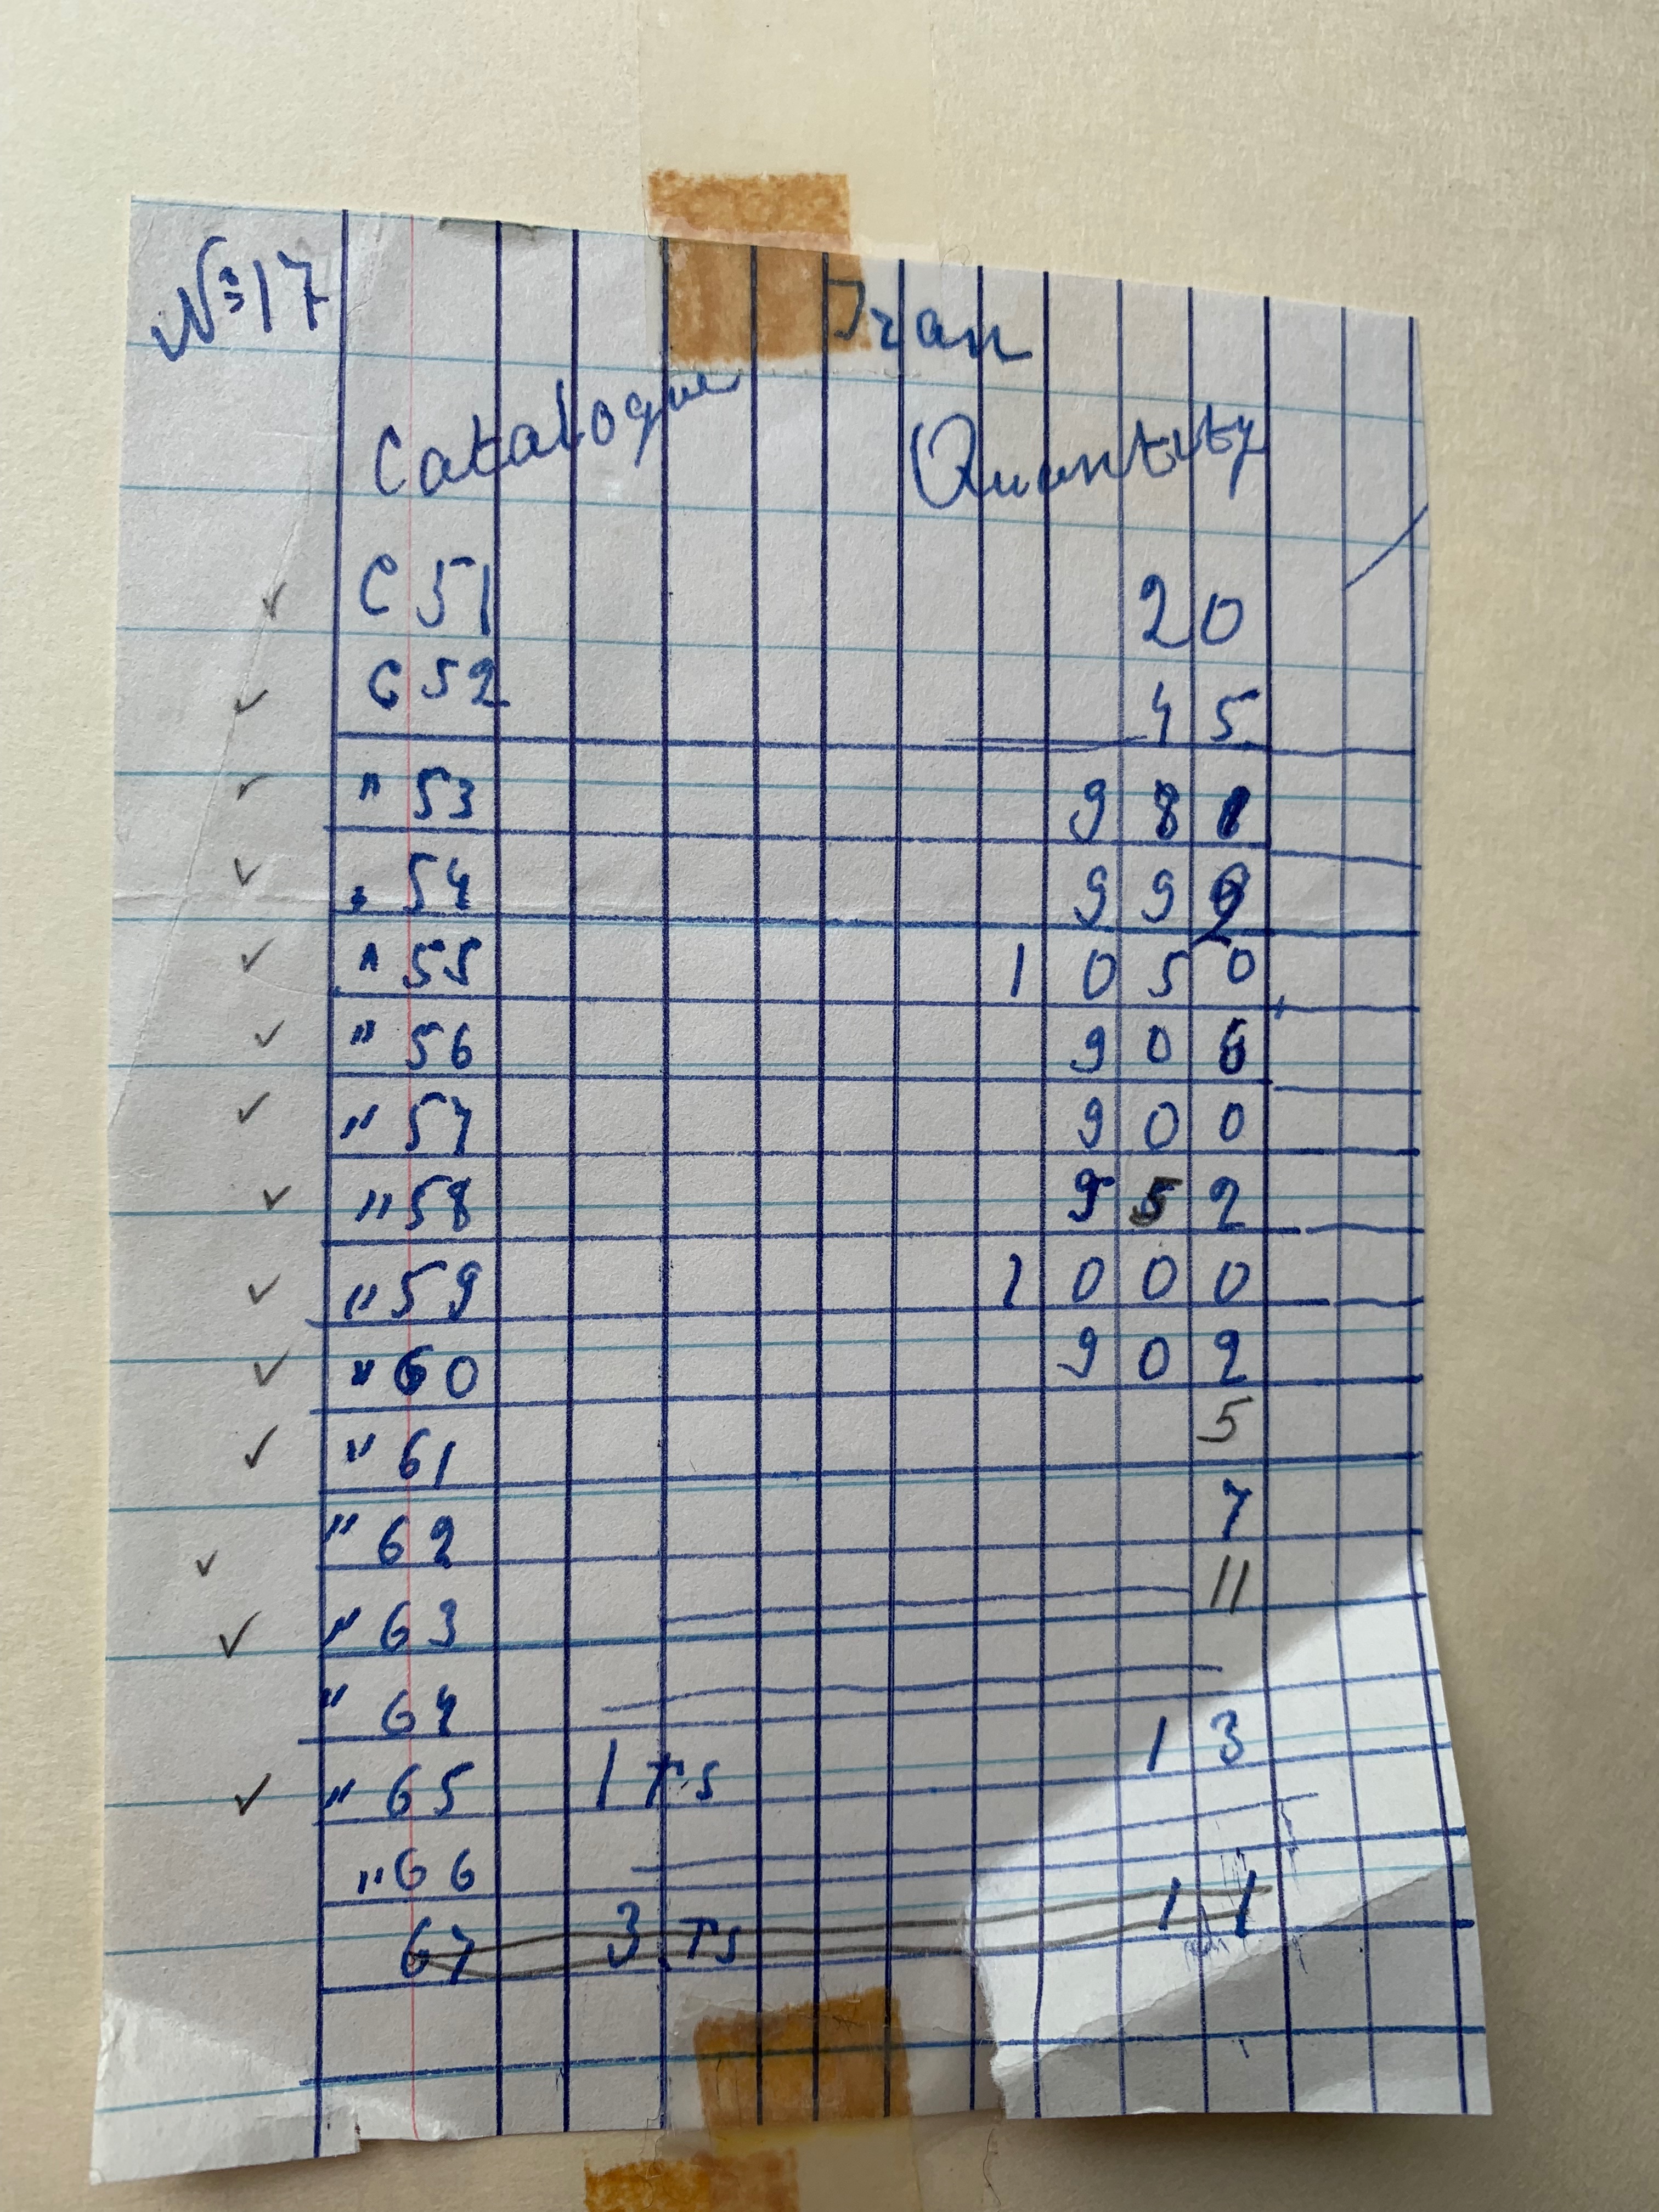 № 17
Iran
Catalogue Quantity
C 51 20
C 52 45
" 53 981
" 54 99
" 55 1050
" 56 906
" 57 900
" 58 952
" 59 1000
" 60 902
" 61 5
" 62 7
" 63 11
" 64
" 65 1 TS 13
" 66
67 3 TS 11